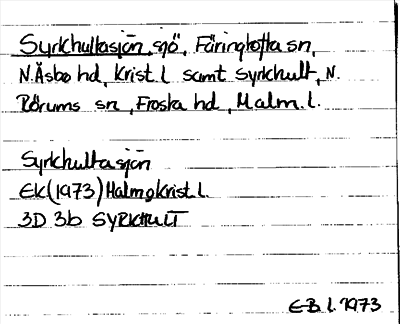 Syrkhultasjön, sjö, Färingtofta sn,
N. Åsbo hd, Krist. l samt Syrkhult, N.
Rörums sn, Frosta hd, Malm. l.
Syrkhultasjön
EK (1973) Malm o Krist l.
3D 3b SYRKHULT
EB l. 1973